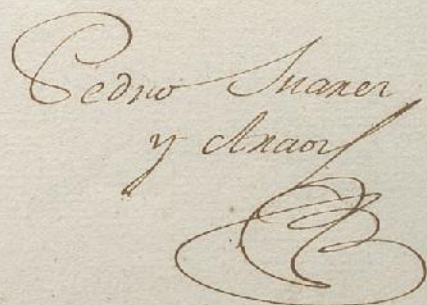 Pedro Suarez
y Araoz